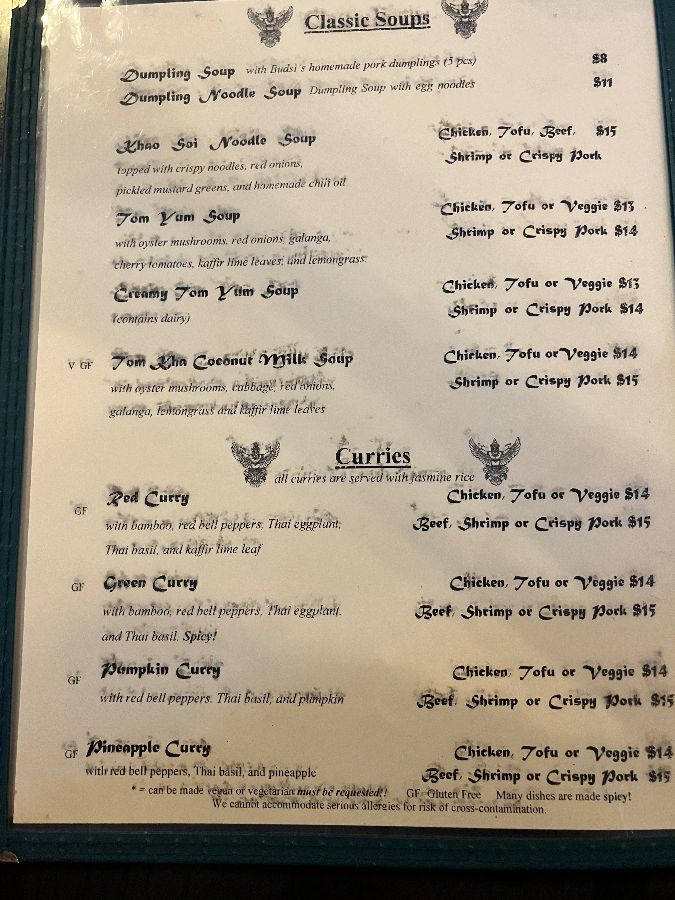 Classic Soups
Dumpling Soup with Budsi's homemade pork dumplings (5 pcs) $8
Dumpling Noodle Soup Dumpling Soup with egg noodles $11
Khao Soi Noodle Soup Chicken, Tofu, Beef, $15
topped with crispy noodles, red onions, Shrimp or Crispy Pork
pickled mustard greens, and homemade chili oil
Tom Yum Soup Chicken, Tofu or Veggie $13
with oyster mushrooms, red onions, galanga, Shrimp or Crispy Pork $14
cherry tomatoes, kaffir lime leaves, and lemongrass
Creamy Tom Yum Soup Chicken, Tofu or Veggie $13
(contains dairy) Shrimp or Crispy Pork $14
V GF Tom Kha Coconut Milk Soup Chicken, Tofu or Veggie $14
with oyster mushrooms, cabbage, red onions, Shrimp or Crispy Pork $15
galanga, lemongrass and kaffir lime leaves
Curries
all curries are served with jasmine rice
GF Red Curry Chicken, Tofu or Veggie $14
with bamboo, red bell peppers, Thai eggplant, Beef, Shrimp or Crispy Pork $15
Thai basil, and kaffir lime leaf
GF Green Curry Chicken, Tofu or Veggie $14
with bamboo, red bell peppers, Thai eggplant, Beef, Shrimp or Crispy Pork $15
and Thai basil. Spicy!
GF Pumpkin Curry Chicken, Tofu or Veggie $14
with red bell peppers, Thai basil, and pumpkin Beef, Shrimp or Crispy Pork $15
GF Pineapple Curry Chicken, Tofu or Veggie $14
with red bell peppers, Thai basil, and pineapple Beef, Shrimp or Crispy Pork $15
* = can be made vegan or vegetarian must be requested!! GF=Gluten Free Many dishes are made spicy!
We cannot accommodate serious allergies for risk of cross-contamination.